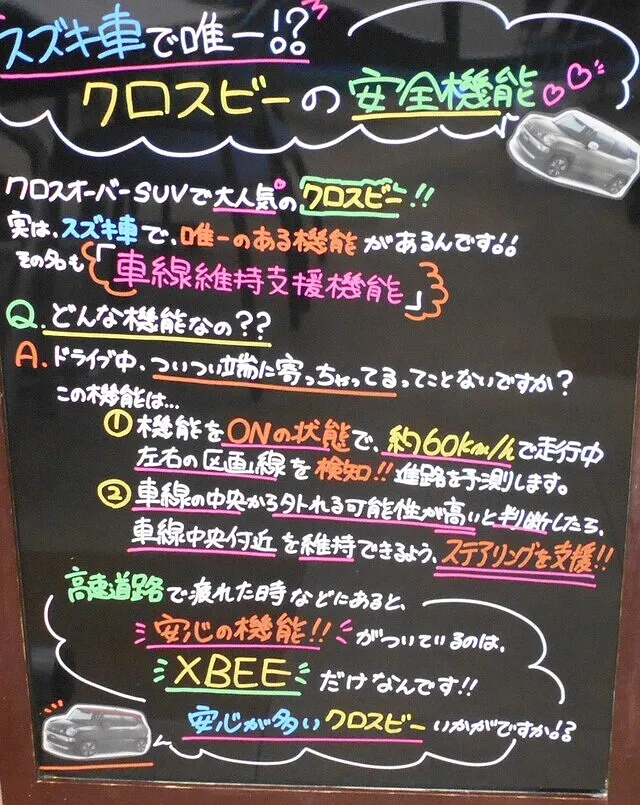 スズキ車で唯一!?
クロスビーの安全機能
クロスオーバーSUVで大人気のクロスビー!!
実は、スズキ車で、唯一のある機能があるんです!!
その名も「車線維持支援機能」
Q.どんな機能なの??
A.ドライブ中、ついつい端に寄っちゃってるってことないですか?
この機能は…
①機能をONの状態で、約60km/hで走行中
左右の区画線を検知!!進路を予測します。
②車線の中央から外れる可能性が高いと判断したら、
車線中央付近を維持できるよう、ステアリングを支援!!
高速道路で疲れた時などにあると、
安心の機能!!がついているのは、
XBEEだけなんです!!
安心が多いクロスビーいかがですか!?